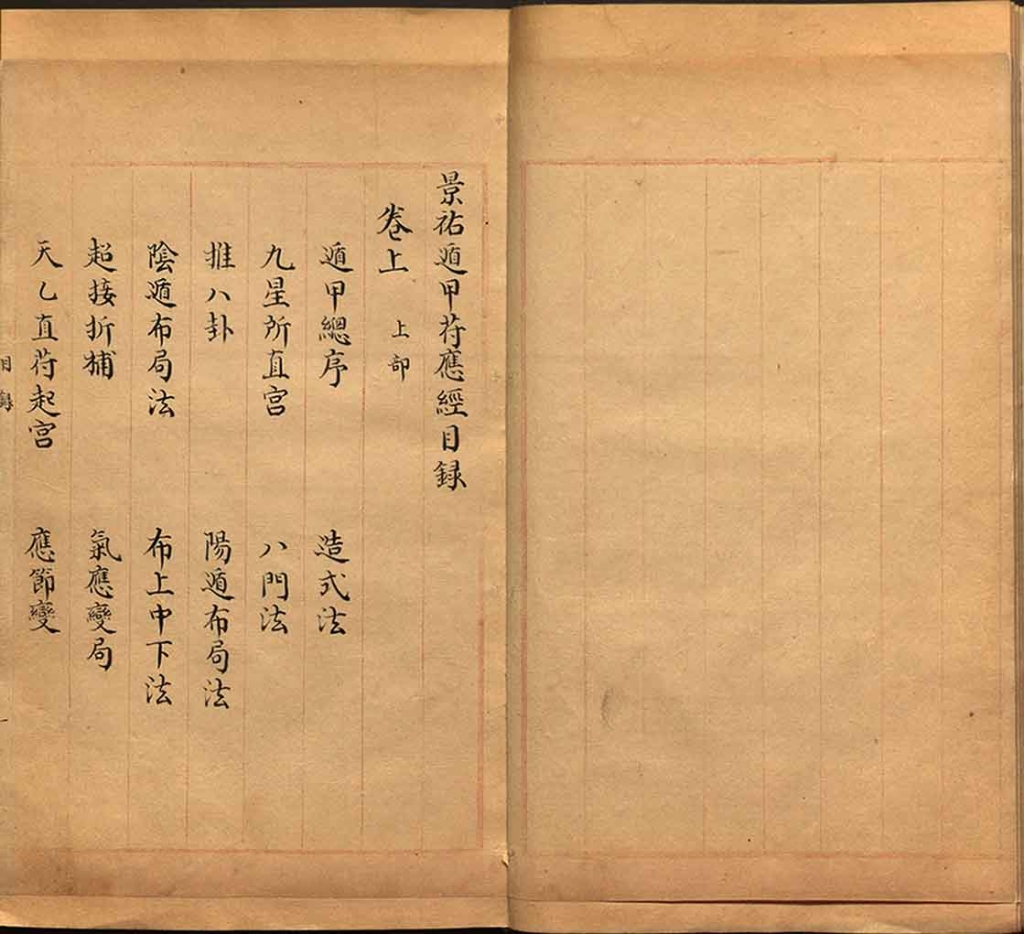 景祐遁甲苻應經目録
卷上 上部
遁甲總序 造式法
九星所直宫 八門法
推八卦 陽遁布局法
陰遁布局法 布上中下法
超接折補 氣應變局
天乙直苻起宫 應節變
目録